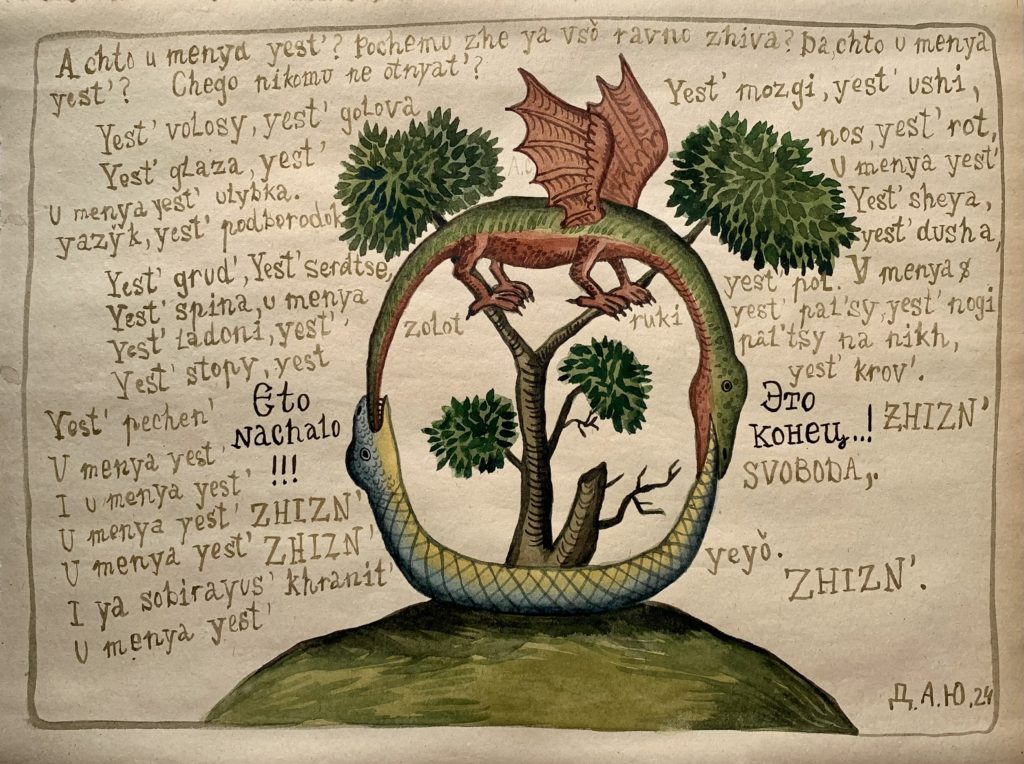 A chto u menya yest'? Pochemu zhe ya vsŏ ravno zhiva? Da, chto u menya
yest'? Chego nikomu ne otnyat'?
Yest' volosy, yest' golova
Yest' glaza, yest'
U menya yest' ulybka.
yazy̆k, yest' podborodok
Yest' grud', Yest' serdtse,
Yest' spina, u menya
Yest' ladoni, yest'
Yest' stopy, yest
Yest' pechen'
U menya yest'
I u menya yest'
U menya yest' ZHIZN'
U menya yest' ZHIZN'
I ya sobirayus' khranit'
U menya yest'
Eto
Nachalo
!!!
zolot
ruki
Yest' mozgi, yest' ushi,
nos, yest' rot,
U menya yest'
Yest' sheya,
yest' dusha,
yest' pot. U menya
yest' pal'sy, yest' nogi
pal'tsy na nikh,
yest' krov'.
Это
конец..!
ZHIZN'
SVOBODA,.
yeyŏ.
ZHIZN'.
Д.А.Ю.24